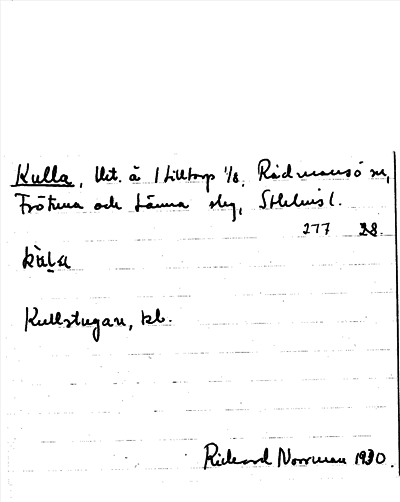 Kulla, Ut. å 1 Lilltorp 1/8, Rådmansö sn,
Frötuna och Länna slg, Sthlms l.
277 28.
Kullstugan, kl.
Rickard Norrman 1930.